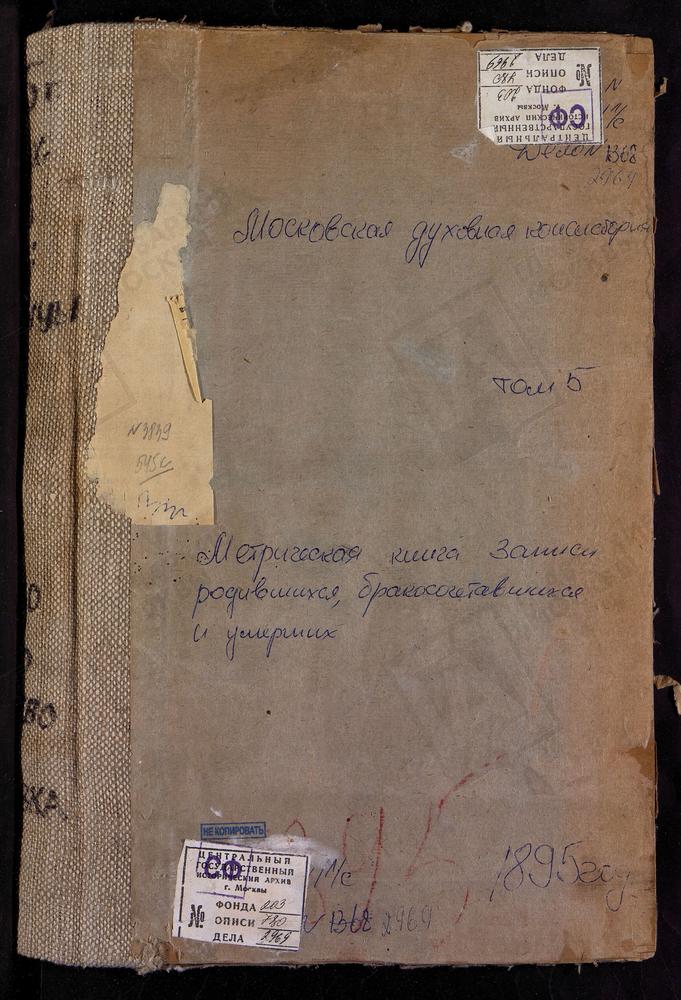 ЦЕНТРАЛЬНЫЙ
ГОСУДАРСТВЕННЫЙ
ИСТОРИЧЕСКИЙ АРХИВ
г. Москвы
СФ
№
ФОНДА 203
ОПИСИ 780
ДЕЛА 2969
N
Дело N 1368
2969
Московская духовная консистория
том 5
N3839
Метрическая книга записи
родившихся, бракосочетавшихся
и умерших
НЕ КОПИРОВАТЬ
ЦЕНТРАЛЬНЫЙ
ГОСУДАРСТВЕННЫЙ
ИСТОРИЧЕСКИЙ АРХИВ
г. Москвы
СФ
№
ФОНДА 203
ОПИСИ 780
ДЕЛА 2969
N 1368 2969
1895 год